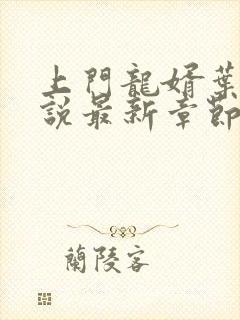 上門龍婿葉
說最新章節
蘭陵客